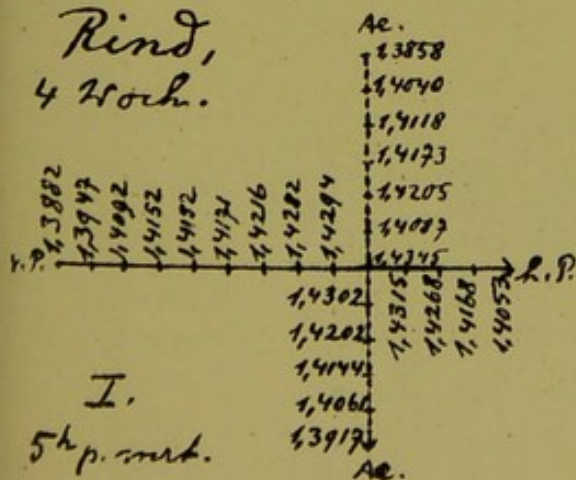 Rind,
4 Woch.
Ae.
1,3858
1,4040
1,4118
1,4173
1,4205
1,4087
1,4345
v.P.
1,3882
1,3947
1,4092
1,4152
1,4182
1,4171
1,4216
1,4282
1,4294
h.P.
1,4315
1,4268
1,4168
1,4053
1,4302
1,4202
1,4144
1,4061
1,3917
Ae.
I.
5h p. mort.